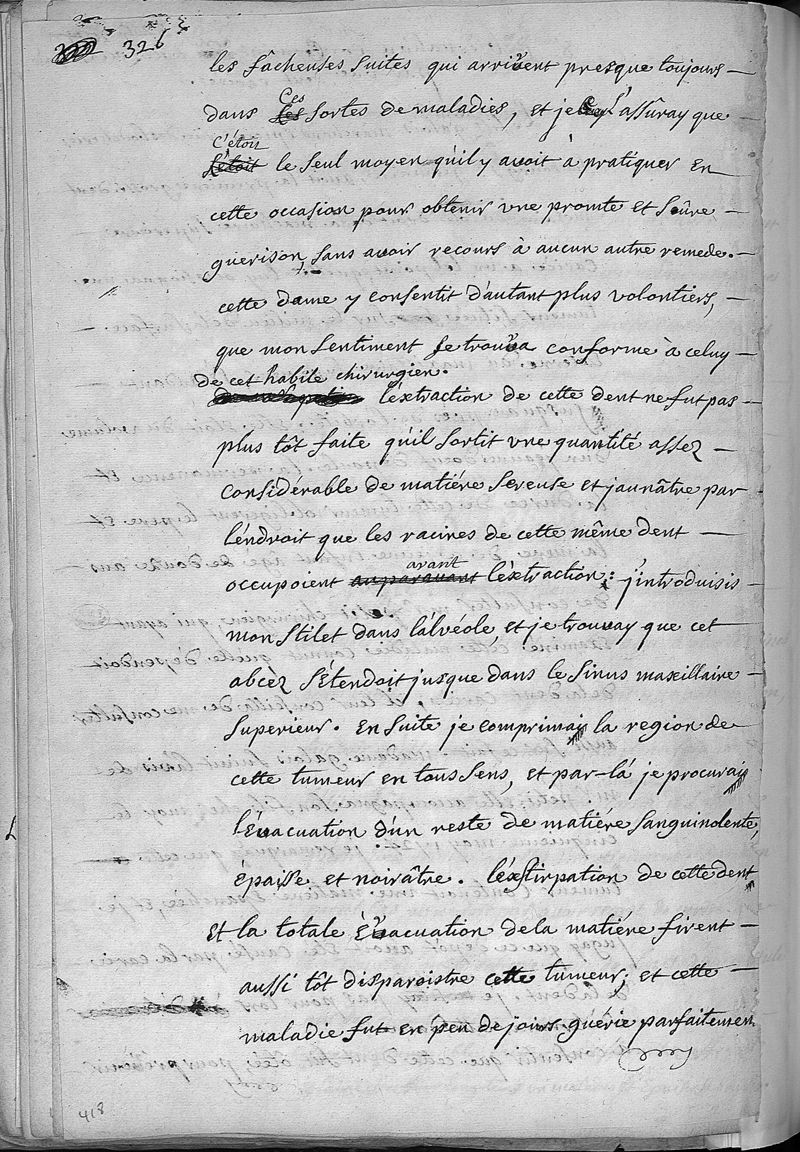 326
les fâcheuses suites qui arrivent presque toujours
dans Ces sortes de maladies, et je l'assûray que
C'étoit le seul moyen qu'il y avoit à pratiquer en
cette occasion pour obtenir vne promte et sûre
guerison, sans avoir recours à aucun autre remede.
cette dame y consentit d'autant plus volontiers,
que mon sentiment se trouva conforme à celuy
de cet habile chirurgien.
l'éxtraction de cette dent ne fut pas
plus tôt faite qu'il sortit vne quantité assez
considérable de matiére sereuse et jaunâtre par
l'éndroit que les racines de cette même dent
occupoient avant l'éxtraction: j'introduisis
mon stilet dans l'alvéole, et je trouvay que cet
abcez s'étendoit jusque dans le sinus maxillaire
superieur. En suite je comprimais la region de
cette tumeur en tous sens, et par-là je procurais
l'évacuation d'un reste de matiére sanguinolente,
épaisse et noirâtre. l'éxstirpation de cette dent
et la totale évacuation de la matiére firent
aussi tôt disparoistre cette tumeur; et cette
maladie fut en peu de jours guérie parfaitement
418